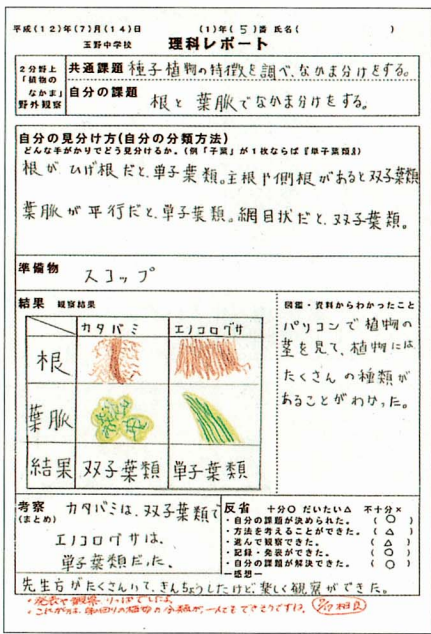 平成(12)年(7)月(14)日 (1)年(5)番 氏名( )
玉野中学校 理科レポート
2分野上
「植物の
なかま」
野外観察
共通課題 種子植物の特徴を調べ、なかま分けをする。
自分の課題
根と葉脈でなかま分けをする。
自分の見分け方(自分の分類方法)
どんな手がかりでどう見分けるか。(例「子葉」が1枚ならば『単子葉類』)
根がひげ根だと、単子葉類。主根や側根があると双子葉類
葉脈が平行だと、単子葉類。網目状だと、双子葉類。
準備物 スコップ
結果 観察結果
カタバミ エノコログサ
根
葉脈
結果 双子葉類 単子葉類
図鑑・資料からわかったこと
パソコンで植物の
茎を見て、植物には
たくさんの種類が
あることがわかった。
考察
(まとめ)
カタバミは、双子葉類で
エノコログサは、
単子葉類だった。
反省 十分○ だいたい△ 不十分×
・自分の課題が決められた。 (○)
・方法を考えることができた。 (△)
・進んで観察できた。 (△)
・記録・発表ができた。 (○)
・自分の課題が解決できた。 (○)
ー感想ー
先生方がたくさんいて、きんちょうしたけど、楽しく観察ができた。
・発表や観察、りっぱでしたよ。